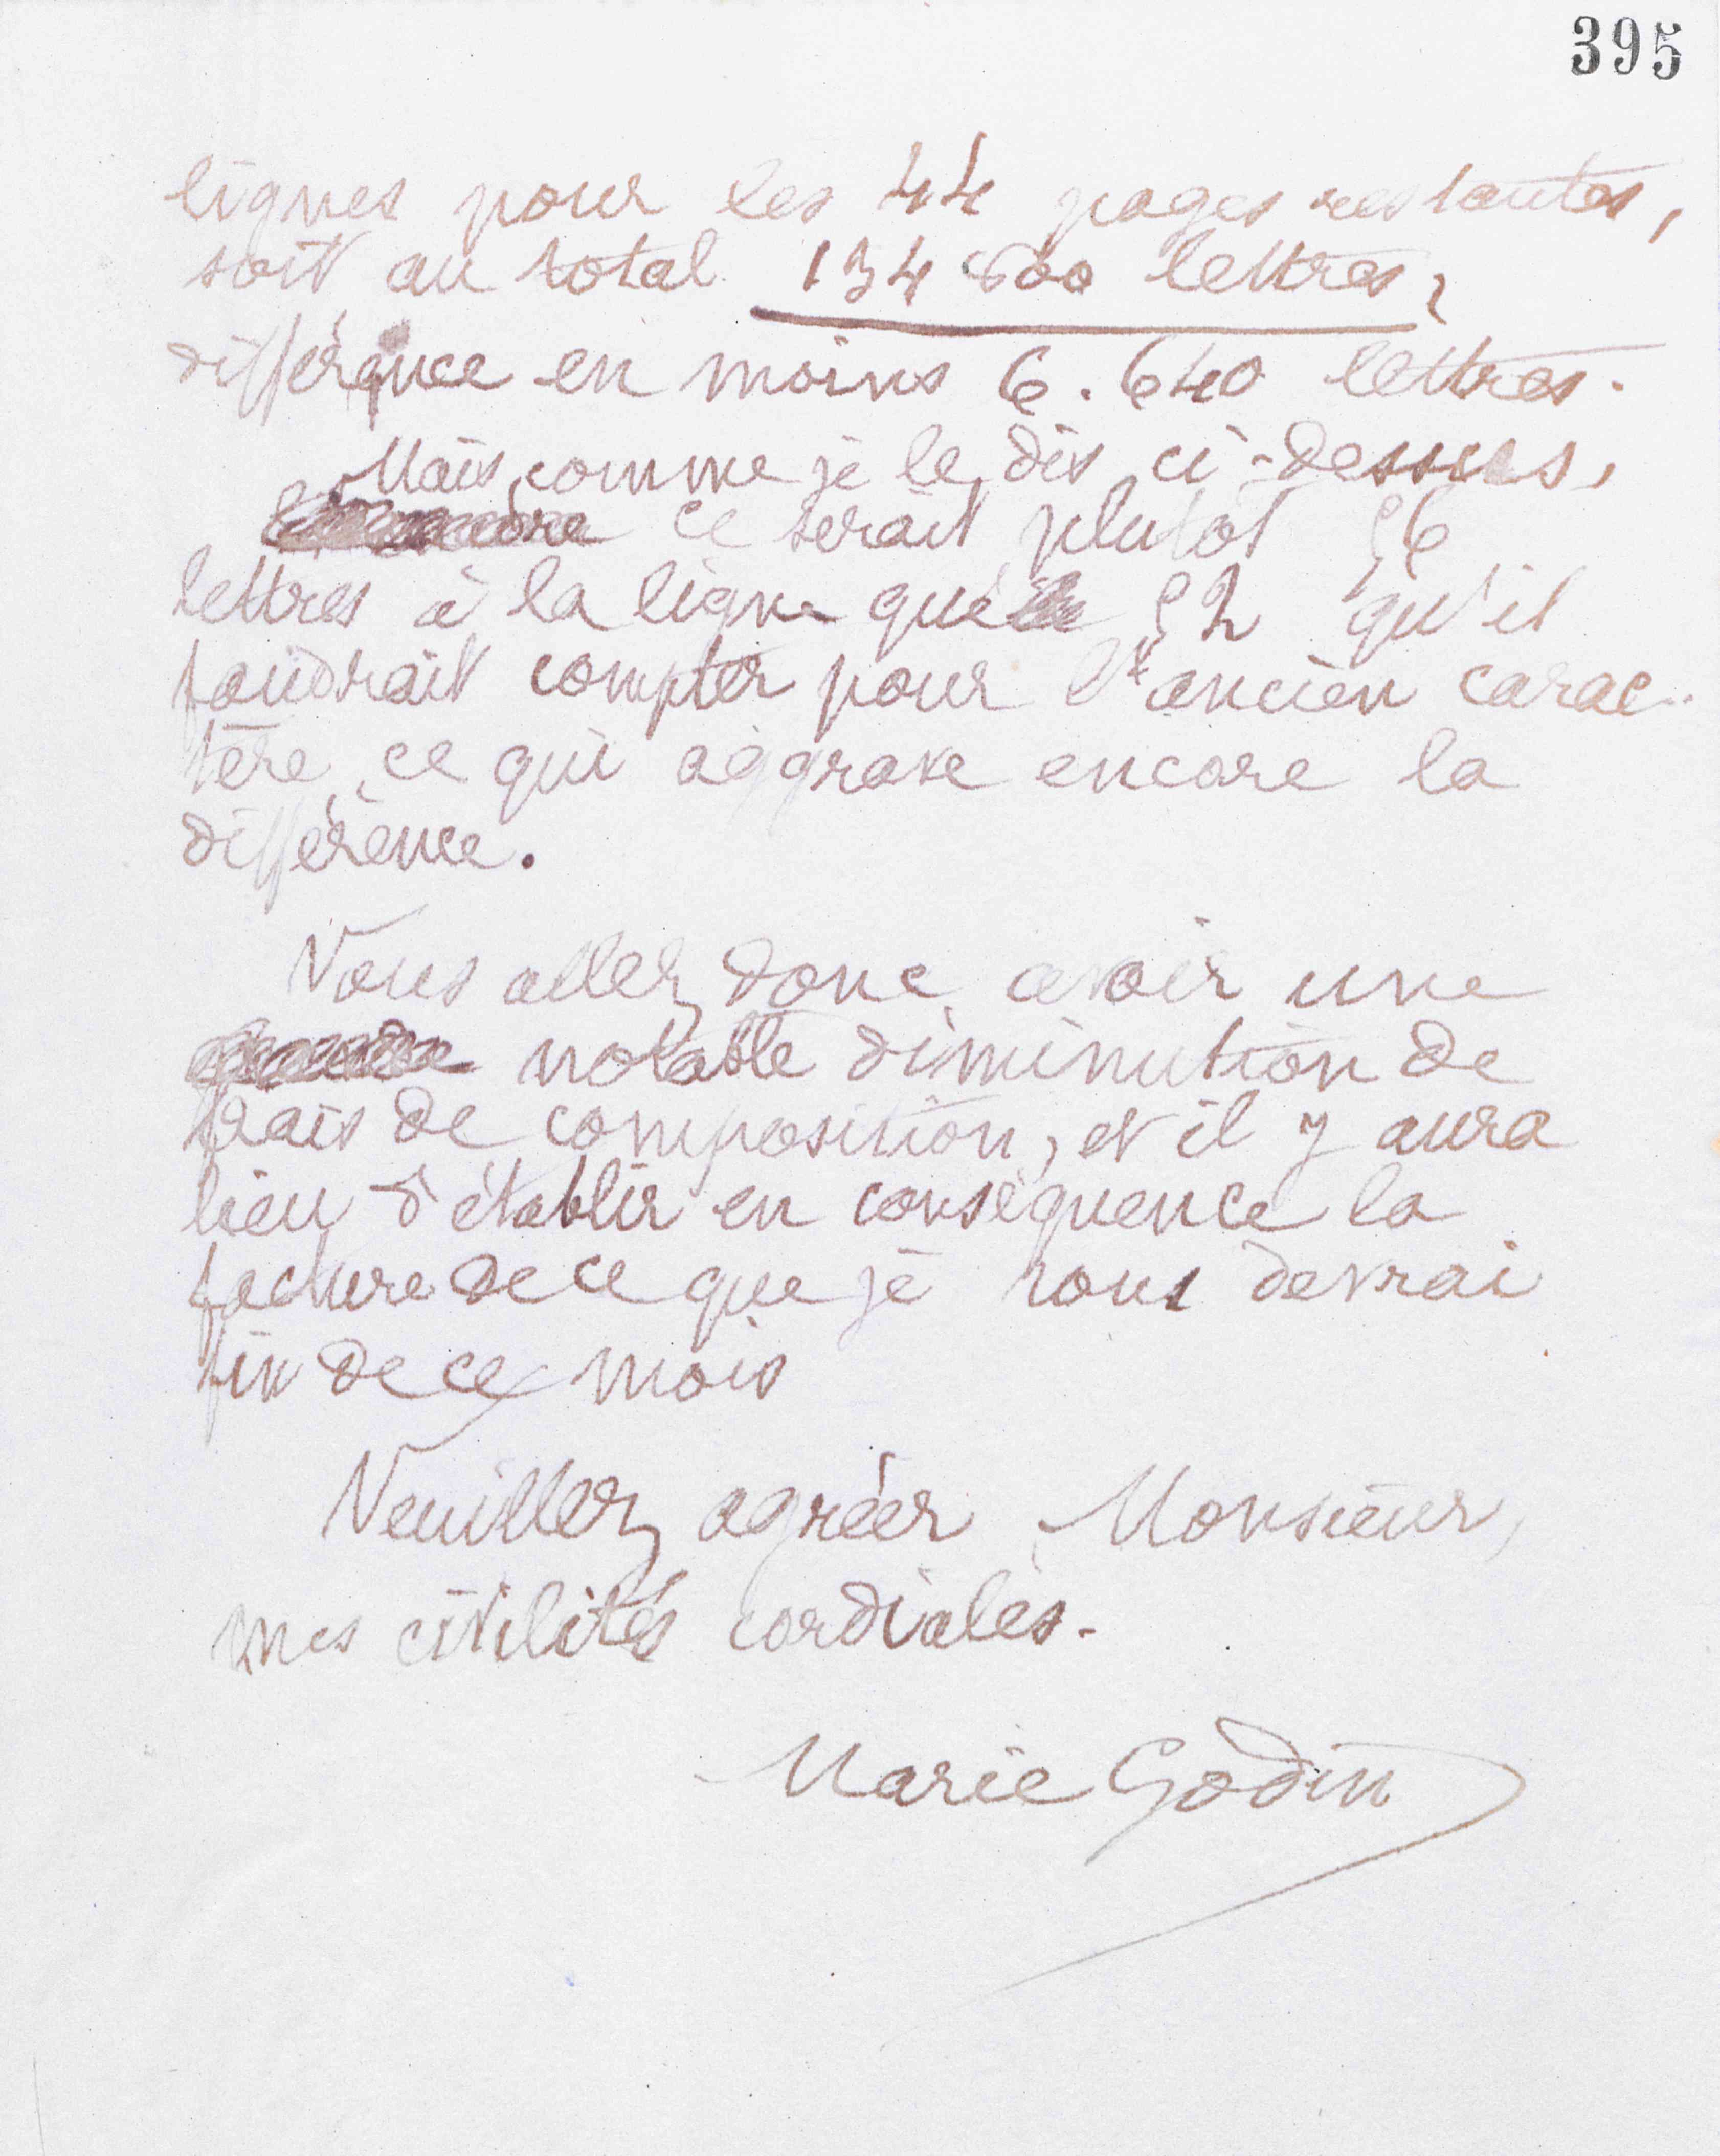 395
lignes pour les 44 pages restantes,
soit au total 134 800 lettres,
différence en moins 6.640 lettres.
Mais, comme je le dis ci-dessus,
ce serait plutôt 56
lettres à la ligne que 52 qu'il
faudrait compter pour l'ancien carac-
tère, ce qui aggrave encore la
différence.
Vous allez donc avoir une
notable diminution de
frais de composition, et il y aura
lieu d'établir en conséquence la
facture de ce que je vous devrai
fin de ce mois
Veuillez agréer, Monsieur,
mes civilités cordiales.
Marie Godin